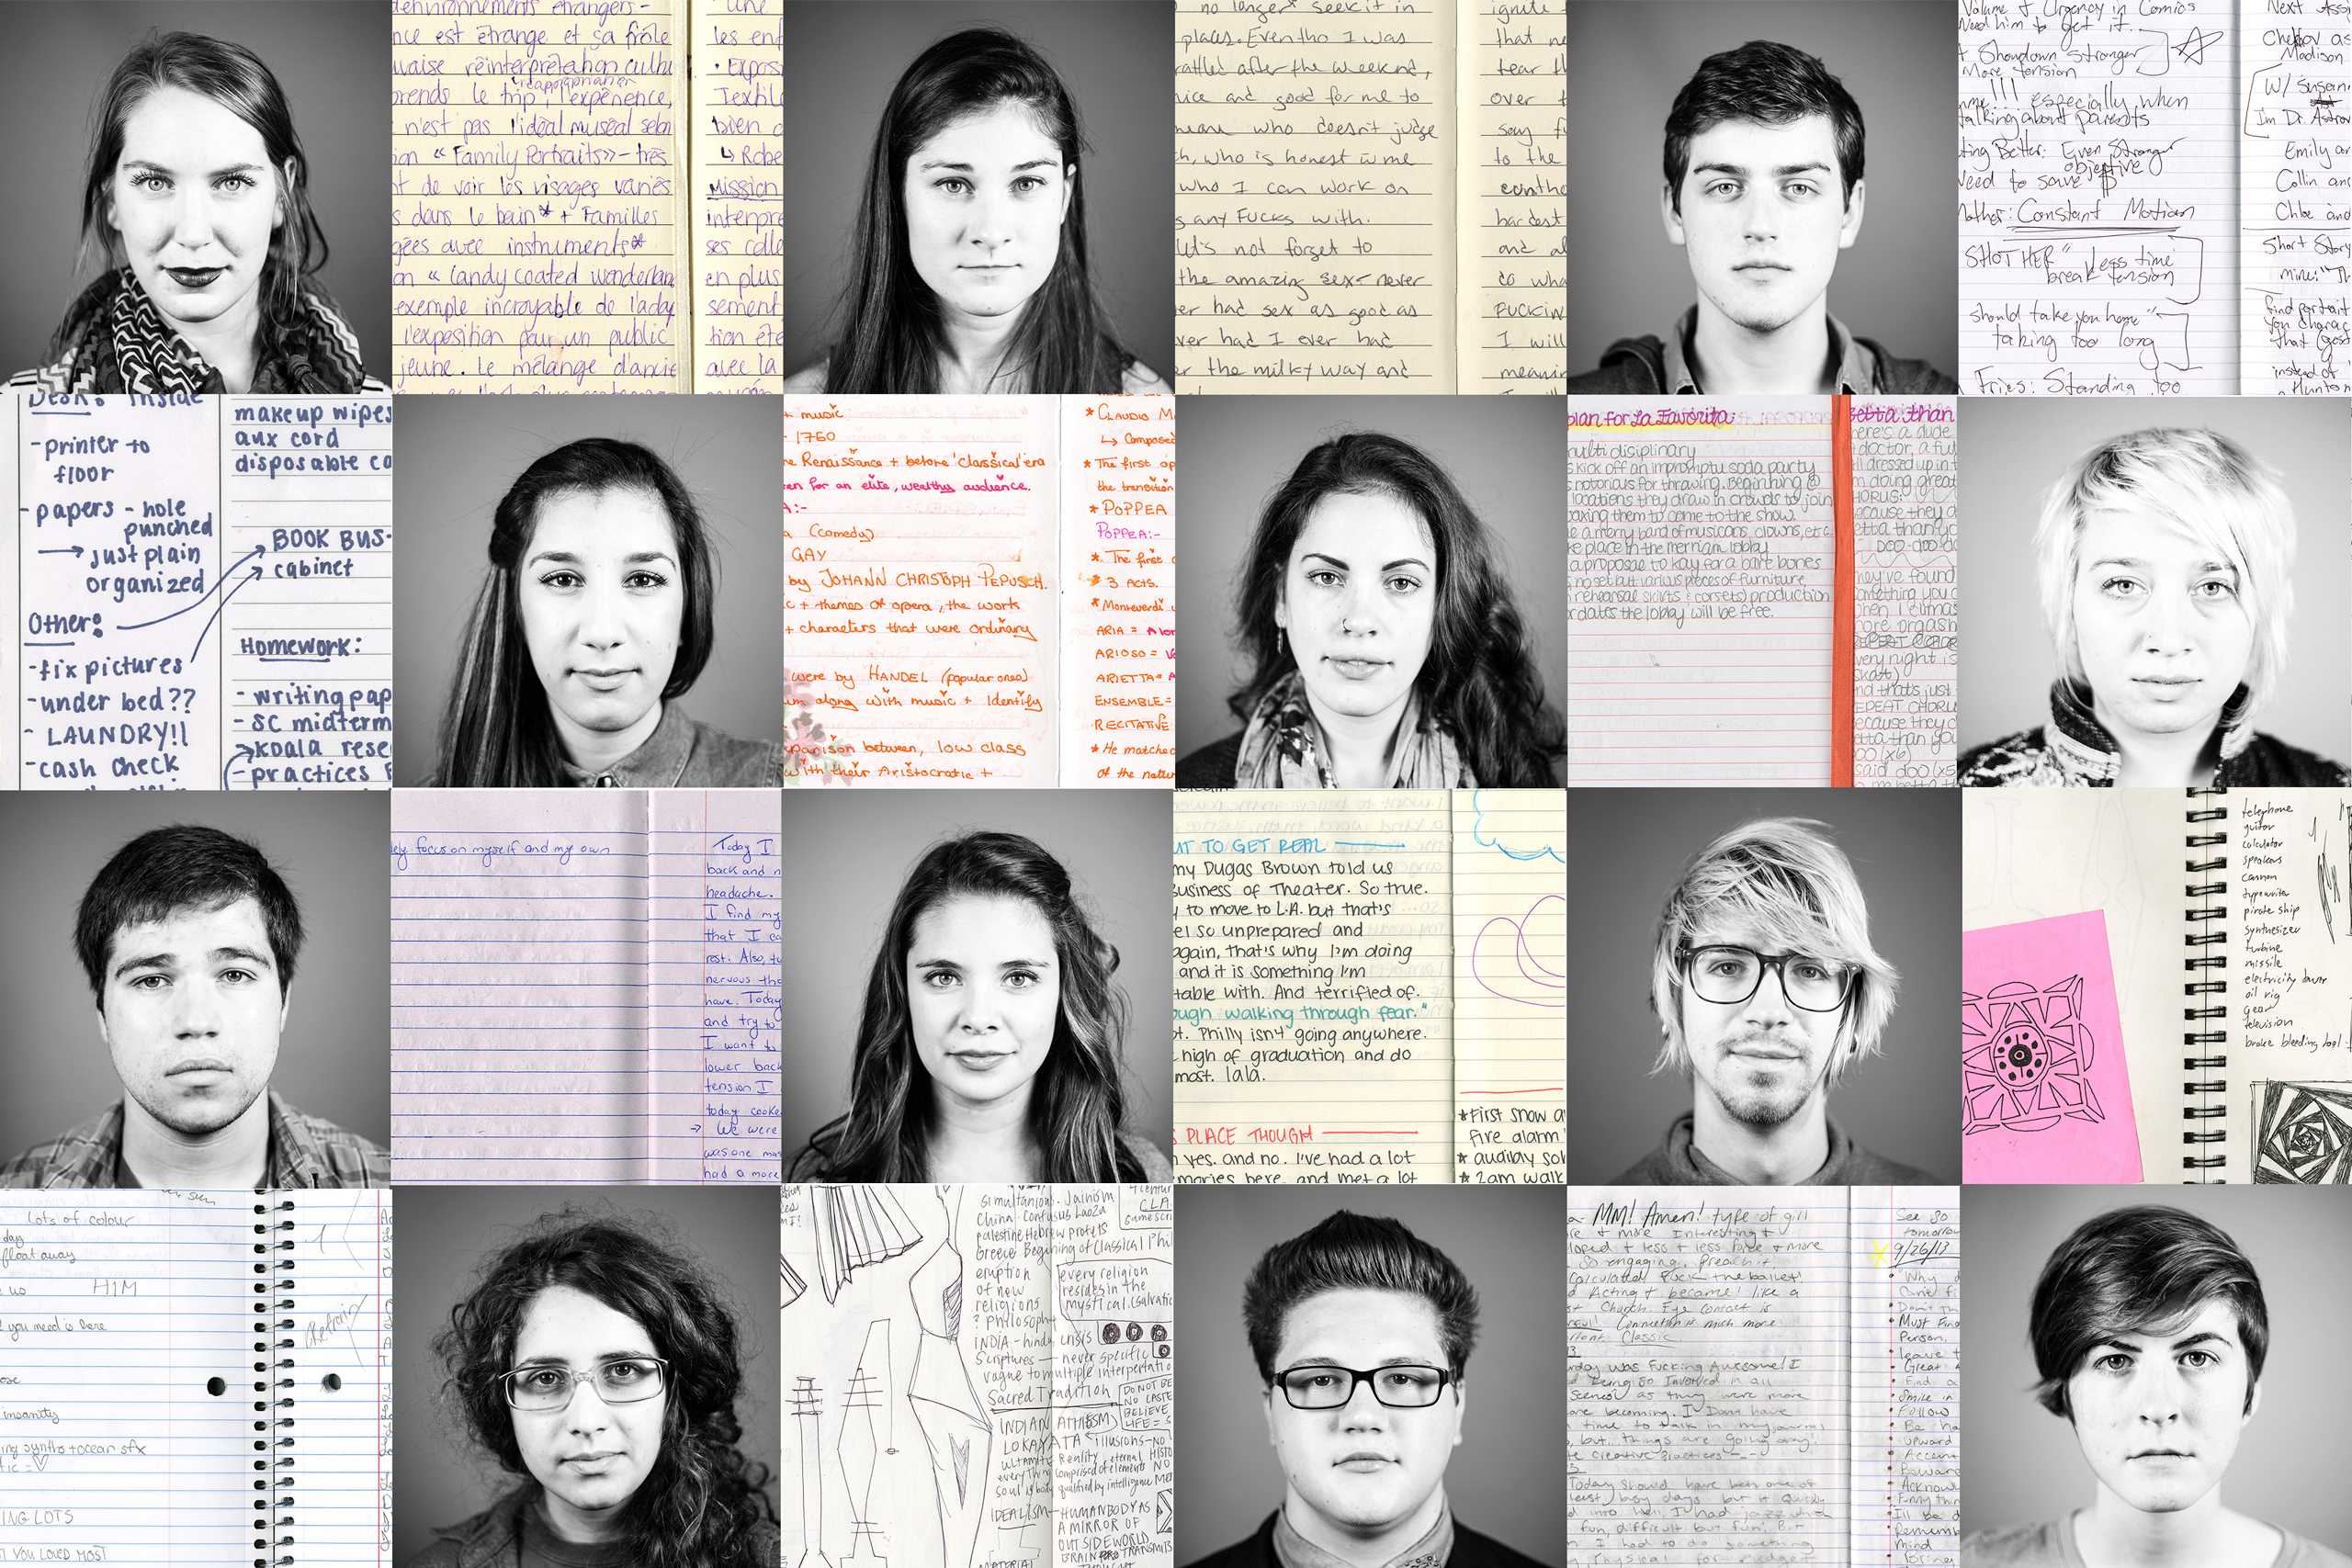 environnements étrangers-
nce est étrange et sa frôle
uvaise réinterprétation cultu
réappropriation
prends le trip, l'expérience,
n'est pas l'idéal muséal selon
on « Family Portraits» - très
t de voir les visages variés
s dans le bain* + Familles
gées avec instruments*
on « Candy coated wonderlan
exemple incroyable de l'adap
l'exposition pour un public
jeune. Le mélange d'ancie
une
les enf
• Expos
Textile
bien
↳ Robe
mission
interpré
ses colle
en plus
sement
tion été
avec la
no longer seek it in
places. Even tho I was
rattled after the weekend,
nice and good for me to
who doesn't judge
, who is honest w me
who I can work on
s any FUCKS with.
Let's not forget to
the amazing sex - never
er had sex as good as
ver had I ever had
r the milky way and
ignite
that ne
tear th
over t
say f
to the
hardest
and al
do wha
FUCKIN
I will
meanin
Volume & Urgency in Comics
Need him to get it.
Showdown Stranger
More tension
!!! especially when
talking about parents
ting Better: Even Stronger
objective
Need to save $
Mother: Constant Motion
"SHOT HER" less time
break tension
should take you home"
taking too long
Fries: Standing too
Next Assi
Chekov as
Madison
W/ Susan
I'm Dr. Astrov
Emily an
Collin and
Chloe and
Short Story
mine: "Th
find portrait
you chara
that (goo
instead of
Hunton
Desk: Inside
-printer to
floor
-papers - hole
punched
→ just plain
organized
Other:
-fix pictures
-under bed??
- LAUNDRY!!
-cash check
makeup wipes
aux cord
disposable ca
BOOK BUS-
cabinet
Homework:
- writing pap
- SC midterm
koala rese
- practices
+ music
- 1760
e Renaissance + before 'classical' era
en for an elite, wealthy audience.
A:-
a (comedy)
GAY
by JOHANN CHRISTOPH PEPUSCH.
c + themes of opera, the work
+ characters that were ordinary
were by HANDEL (popular ones)
um along with music + Identify
mparison between, low class
with their Aristocratic +
* CLAUDIO M
↳ Composed
* The first op
the transition
* POPPEA
POPPEA:-
* The first
* 3 ACTS.
* Monteverdi
ARIA = A lon
ARIOSO = V
ARIETTA = A
ENSEMBLE =
RECITATIVE
* He matched
of the natur
plan for La Favorita:
multi disiplinary
kick off an impromptu soda party
s notorious for thrawing. Beginning @
locations they draw in crowds to join
oaxing them to come to the show.
e a marry band of musicans, clowns, etc.
ke place in the merriam lobby
a proposae to kay for a bare bones
no set but various pieces of furniture,
rehearsal skirts & corsets) production
r dates the lobby will be free.
betta than
ere's a dude
doctor, a ful
ll dressed up in t
m doing great
HORUS:
ecause they d
etta than yo
Doo-doo-do
hey've found
omething you c
hen I climax
more orgasm
REPEAT CHORUS
very night is
skat)
nd that's just
EPEAT CHORU
ecause they d
etta than you
oo (x6)
said doo (x5
ely focus on myself and my own
Today I
back and n
headache.
I find my
that I ca
rest. Also, to
nervous tha
have. Today
and try to
I want to
lower back
tension I
today cooke
→ We were
was one mas
had a more
UT TO GET REAL
my Dugas Brown told us
Business of Theater. So true.
y to move to L.A. but that's
el so unprepared and
again, that's why I'm doing
and it is something I'm
table with. And terrified of.
ough walking through fear."
ot. Philly isn't going anywhere.
high of graduation and do
most. lala.
S PLACE THOUGH
n yes. and no. I've had a lot
mories here, and met a lot
* First snow a
fire alarm
* audibly sob
* 2am walk
telephone
guitar
calculator
speakers
cannon
typewriter
pirate ship
synthesizer
turbine
missile
electricity tower
oil rig
gear
television
brake bleeding tool
Lots of colour
day
float away
us HIM
d you need is here
ose
insanity
ing synths + ocean sfx
tic = ♡
ING LOTS
T YOU LOVED MOST
Refrain
simultanious. Jainism
China - Confusus Laoza
palestine Hebrew profets
Greece Begining of Classical Phi
eruption
of new
religions
? Philosoph
INDIA - hindu crisis
Scriptures — never specific
vague to multiple interpretatio
Sacred Tradition
INDIAN ATHEISM
LOKAYATA
illusions - NO
Ultamite Reality, eternal
every thing comprised of elements
soul is body qualified by intelligence
IDEALISM - HUMAN BODY AS
A MIRROR OF
OUTSIDE WORLD
BRAIN TRANSMITS
MATERIAL
4 centur
CLA
every religion
resides in the
mystical. (salvatic
DO NOT BE
NO CASTE
BELIEVE
LIFE = S
HISTO
NO
MM! Amen! type of girl
re & more Interesting &
loped & less & less fake & more
So engaging. Preach it,
Calculated. Fuck the ballet!
d Acting & became like a
st Church. Eye contact is
Connection is much more
Classic
rday was Fucking Awesome! I
d Being So Involved in all
Scenes as they were more
are becoming. I Dont have
time to talk in my journal
, but... things are going okay!
te creative practices
Today should have been one of
least busy days but it Quickly
d into Hell. I had jazz which
fun, difficult but fun. But
I had to do something
See go
tomorrow
9/26/13
• "Why
• Dont th
• Must Find
Person.
• leave t
• Great
• Find a
• Smile in
• Follow
• Be ha
• upward
• Accent
• Beware
• Acknow
• Funny thin
• I'll be d
• Rememb
Mind
• loving